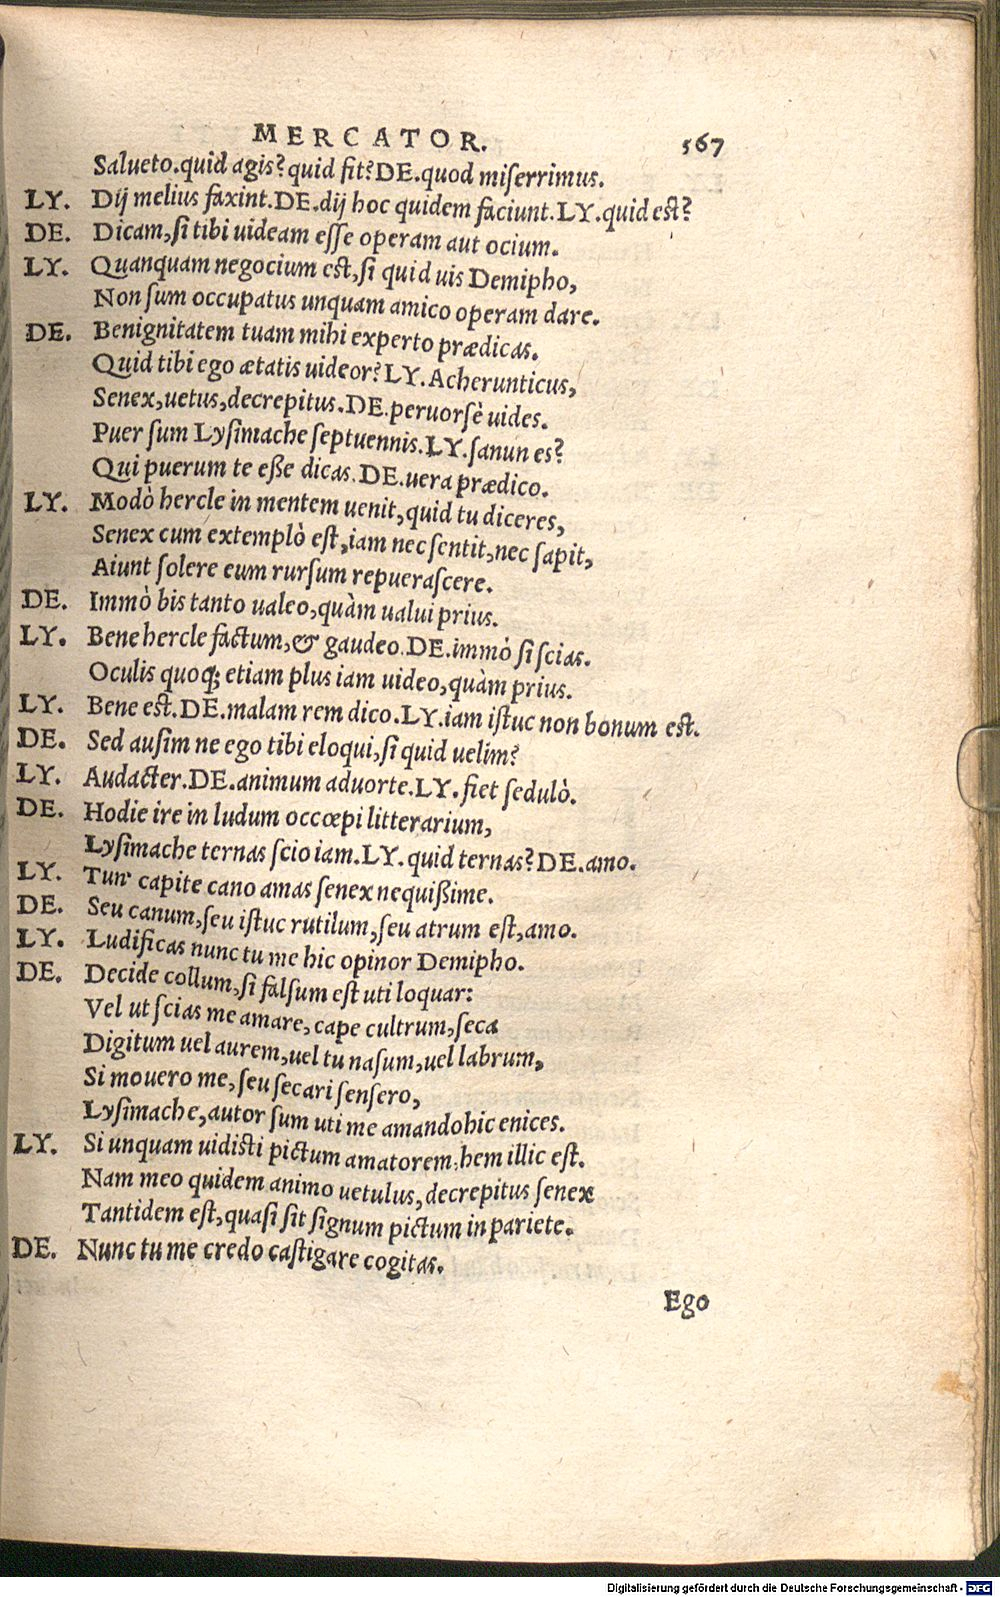 MERCATOR. 567
Salueto.quid agis? quid fit? DE.quod miſerrimus.
LY. Dij melius faxint.DE.dij hoc quidem faciunt.LY.quid eſt?
DE. Dicam,ſi tibi uideam eſſe operam aut ocium.
LY. Quanquam negocium eſt,ſi quid uis Demipho,
Non ſum occupatus unquam amico operam dare.
DE. Benignitatem tuam mihi experto prædicas.
Quid tibi ego ætatis uideor? LY.Acherunticus,
Senex,uetus,decrepitus.DE.peruorsè uides.
Puer ſum Lyſimache ſeptuennis.LY.ſanun es?
Qui puerum te eſſe dicas.DE.uera prædico.
LY. Modò hercle in mentem uenit,quid tu diceres,
Senex cum extemplò eſt,iam nec ſentit,nec ſapit,
Aiunt ſolere eum rurſum repueraſcere.
DE. Immò bis tanto ualeo,quàm ualui prius.
LY. Bene hercle factum,& gaudeo.DE.immò ſi ſcias.
Oculis quoq; etiam plus iam uideo,quàm prius.
LY. Bene eſt.DE.malam rem dico.LY.iam iſtuc non bonum eſt.
DE. Sed auſim ne ego tibi eloqui,ſi quid uelim?
LY. Audacter.DE.animum aduorte.LY.fiet ſedulò.
DE. Hodie ire in ludum occœpi litterarium,
Lyſimache ternas ſcio iam.LY.quid ternas? DE.amo.
LY. Tun' capite cano amas ſenex nequiſſime.
DE. Seu canum,ſeu iſtuc rutilum,ſeu atrum eſt,amo.
LY. Ludificas nunc tu me hic opinor Demipho.
DE. Decide collum,ſi falſum eſt uti loquar:
Vel ut ſcias me amare,cape cultrum,ſeca
Digitum uel aurem,uel tu naſum,uel labrum,
Si mouero me,ſeu ſecari ſenſero,
Lyſimache,autor ſum uti me amando hic enices.
LY. Si unquam uidiſti pictum amatorem,hem illic eſt.
Nam meo quidem animo uetulus,decrepitus ſenex
Tantidem eſt,quaſi ſit ſignum pictum in pariete.
DE. Nunc tu me credo caſtigare cogitas.
Ego
Digitalisierung gefördert durch die Deutsche Forschungsgemeinschaft - DFG